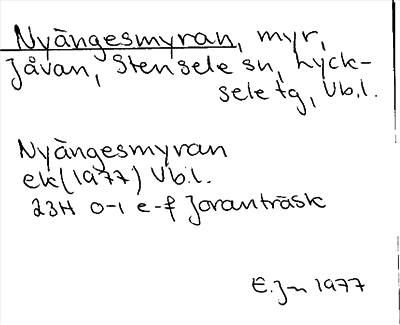 Nyängesmyran, myr,
Jåvan, Stensele sn, Lyck-
sele tg, Vb.l.
Nyängesmyran
ek (1977) Vb.l.
23H 0-1 e-f Joranträsk
E. Jn 1977